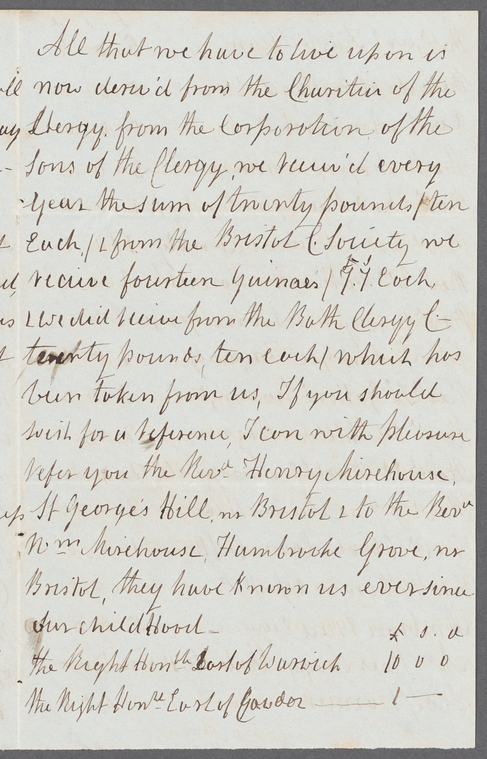 All that we have to live upon is
now deriv'd from the Charities of the
Clergy. from the Corporation of the
Sons of the Clergy, we receiv'd every
year the sum of twenty pounds / ten
Each / & from the Bristol C. Society we
receive fourteen Guineas / 7. 7 Each
& we did receive from the Bath Clergy C
twenty pounds, ten each / which has
been taken from us, If you should
wish for a reference, I can with pleasure
refer you the Revd Henry Mirehouse,
St George's Hill, nr Bristol & to the Revd
Wm Mirehouse, Hambrooke Grove, nr
Bristol, they have known us ever since
our childhood -
£ s. d
the Right Honble Earl of Warwich 10 0 0
the Right Honble Earl of Cawdor 1 -